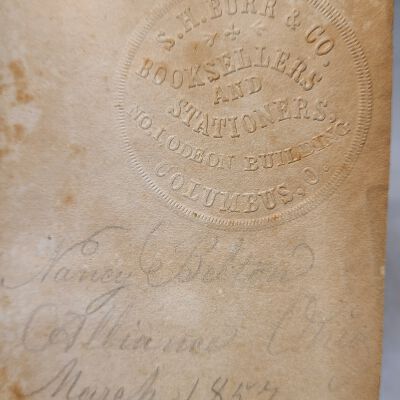 S.H. BURR & CO.
BOOKSELLERS
AND
STATIONERS,
NO. 1 ODEON BUILDING
COLUMBUS, O.
Nancy Belton
Alliance Ohio
March 1857